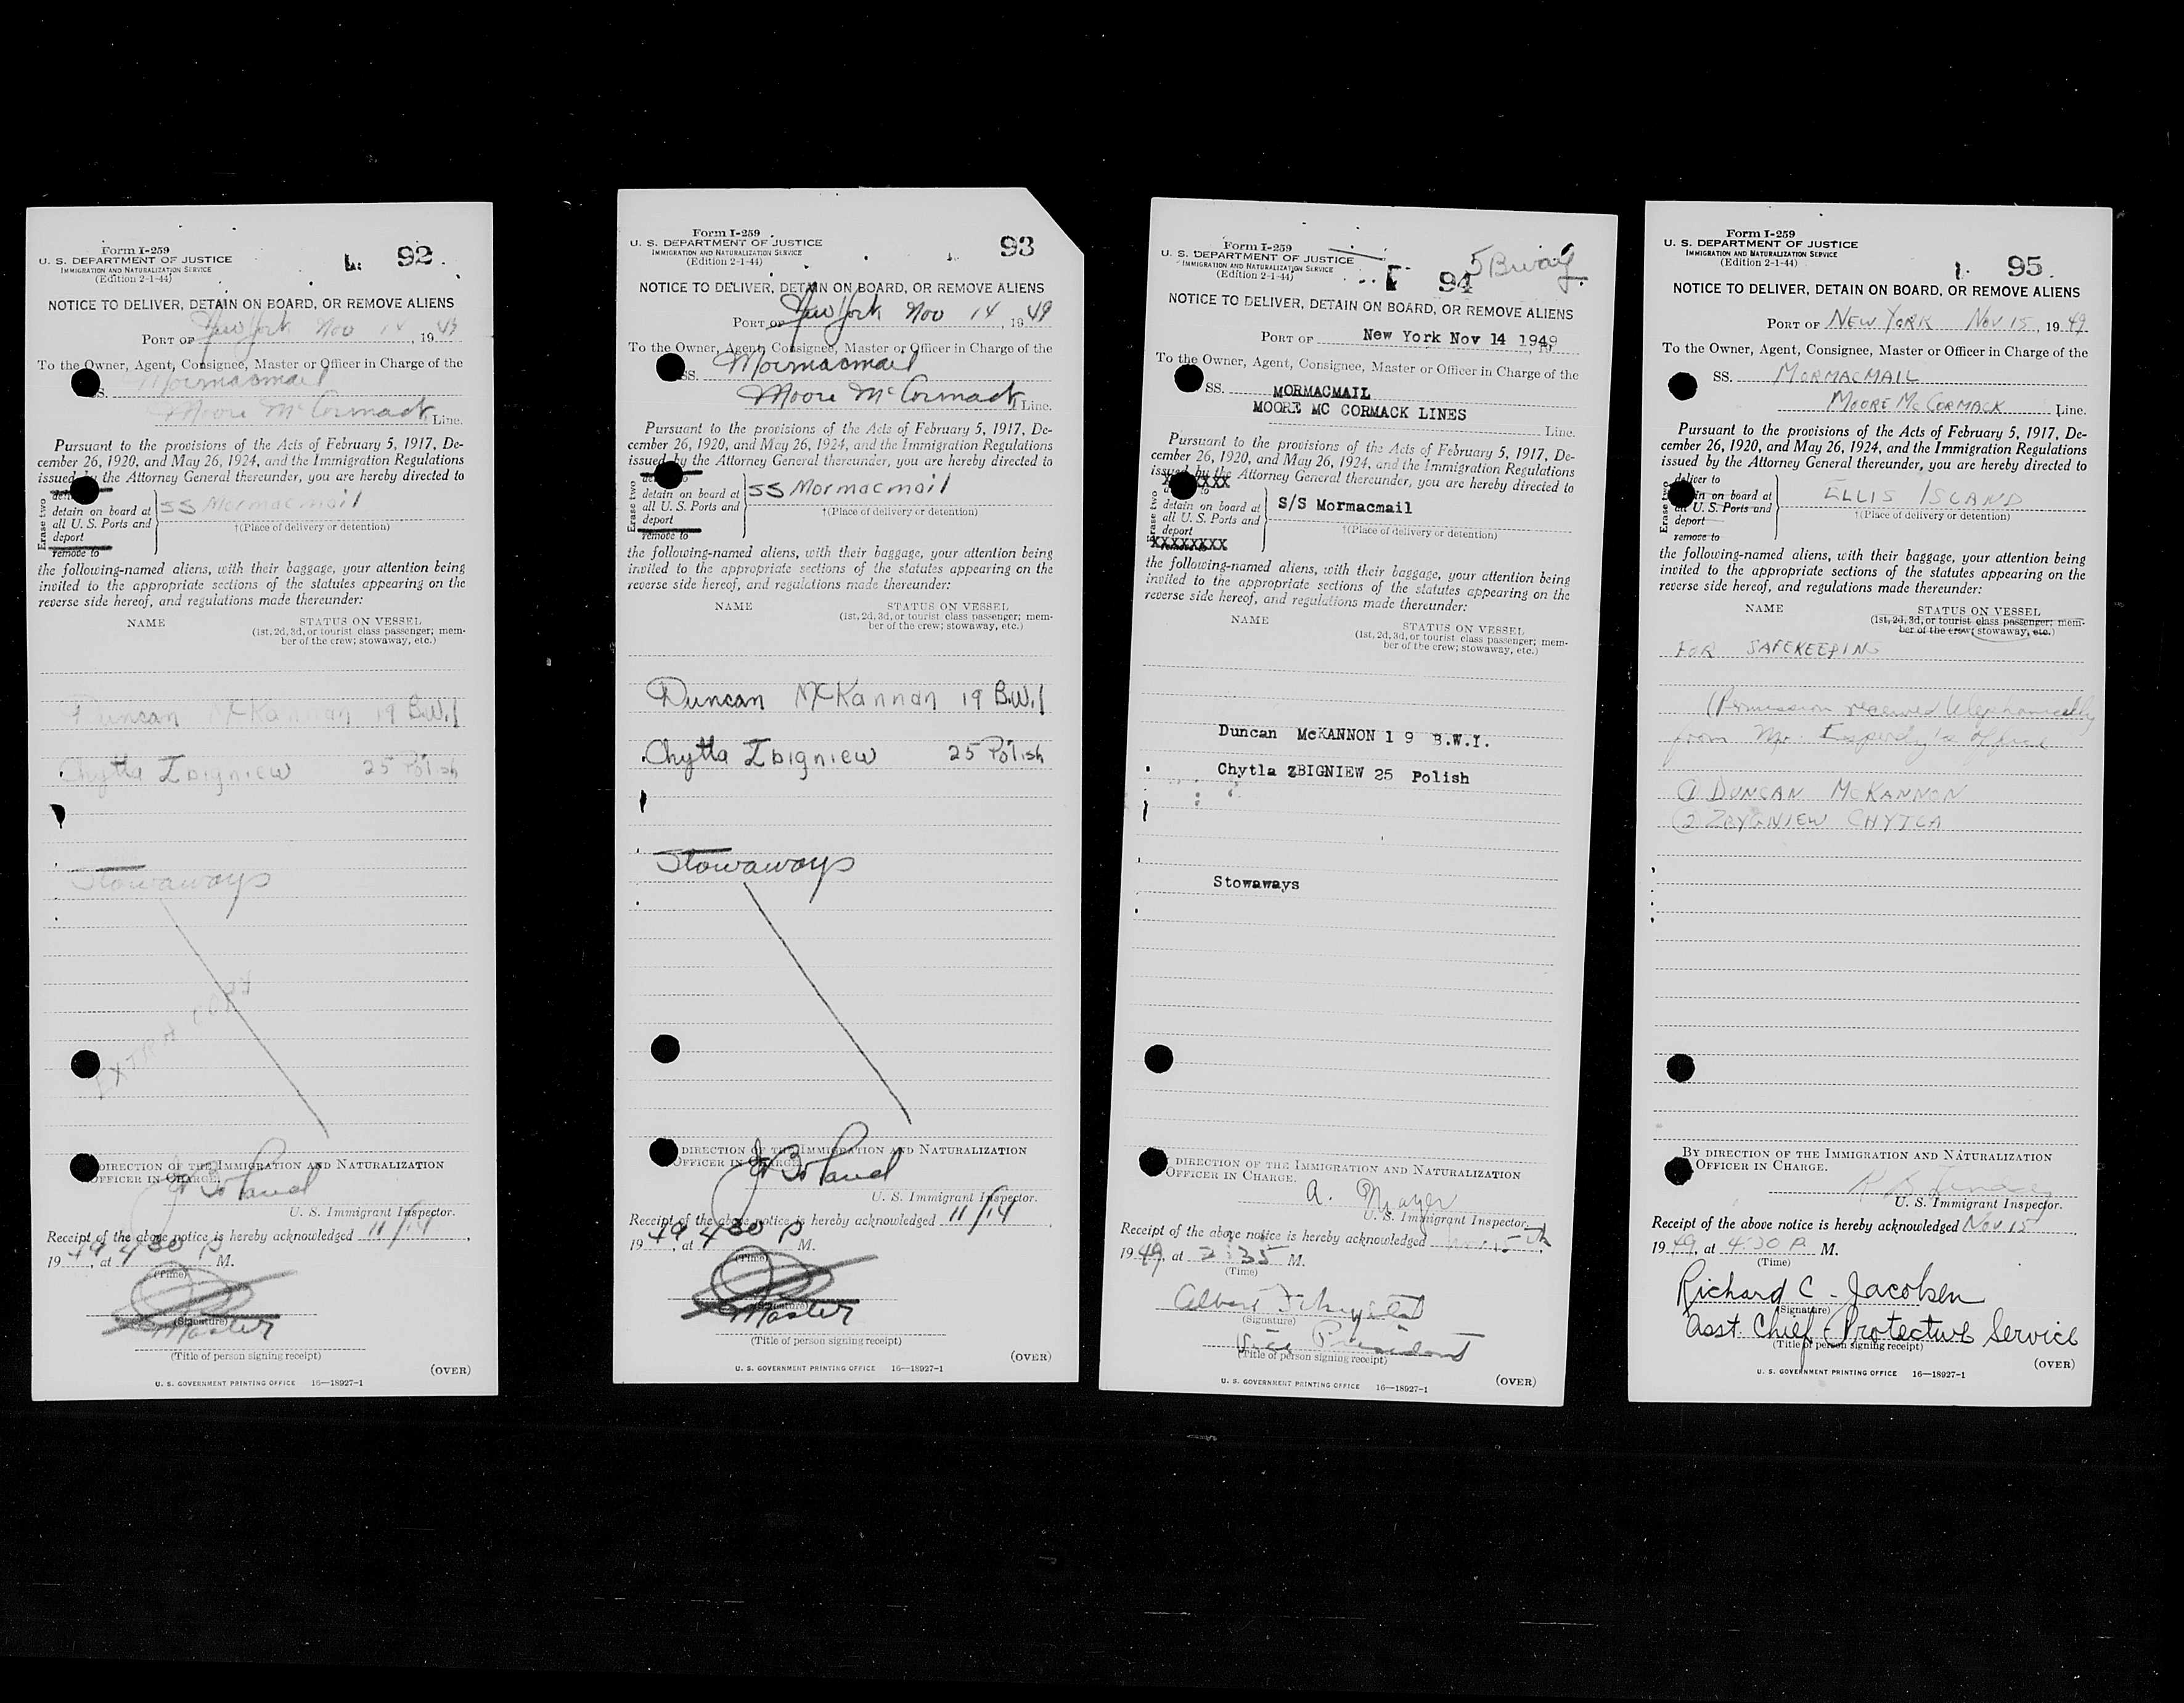 Form I-259
U. S. DEPARTMENT OF JUSTICE
IMMIGRATION AND NATURALIZATION SERVICE
(Edition 2-1-44)
92
NOTICE TO DELIVER, DETAIN ON BOARD, OR REMOVE ALIENS
PORT OF New York Nov 14, 1949
To the Owner, Agent, Consignee, Master or Officer in Charge of the
Mormacmail
Moore McCormack Line.
Pursuant to the provisions of the Acts of February 5, 1917, De-
cember 26, 1920, and May 26, 1924, and the Immigration Regulations
issued by the Attorney General thereunder, you are hereby directed to
Erase two
detain on board at
all U. S. Ports and
deport
remove to
SS Mormacmail
†(Place of delivery or detention)
the following-named aliens, with their baggage, your attention being
invited to the appropriate sections of the statutes appearing on the
reverse side hereof, and regulations made thereunder:
NAME STATUS ON VESSEL
(1st, 2d, 3d, or tourist class passenger; mem-
ber of the crew; stowaway, etc.)
Duncan McKannan 19 B.W.I
Chytla Zbigniew 25 Polish
Stowaways
EXTRA COPY
DIRECTION OF THE IMMIGRATION AND NATURALIZATION
OFFICER IN CHARGE.
J Boland
U. S. Immigrant Inspector.
Receipt of the above notice is hereby acknowledged 11/14,
1949, at 430 P M.
(Time)
(Signature)
Master
(Title of person signing receipt)
(OVER)
U. S. GOVERNMENT PRINTING OFFICE 16—18927-1
Form I-259
U. S. DEPARTMENT OF JUSTICE
IMMIGRATION AND NATURALIZATION SERVICE
(Edition 2-1-44)
93
NOTICE TO DELIVER, DETAIN ON BOARD, OR REMOVE ALIENS
PORT OF New York Nov 14, 1949
To the Owner, Agent, Consignee, Master or Officer in Charge of the
SS. Mormacmail
Moore McCormack Line.
Pursuant to the provisions of the Acts of February 5, 1917, De-
cember 26, 1920, and May 26, 1924, and the Immigration Regulations
issued by the Attorney General thereunder, you are hereby directed to
Erase two
detain on board at
all U. S. Ports and
deport
remove to
SS Mormacmail
†(Place of delivery or detention)
the following-named aliens, with their baggage, your attention being
invited to the appropriate sections of the statutes appearing on the
reverse side hereof, and regulations made thereunder:
NAME STATUS ON VESSEL
(1st, 2d, 3d, or tourist class passenger; mem-
ber of the crew; stowaway, etc.)
Duncan McKannan 19 B.W.I
Chytla Zbigniew 25 Polish
Stowaways
DIRECTION OF THE IMMIGRATION AND NATURALIZATION
OFFICER IN CHARGE.
J Boland
U. S. Immigrant Inspector.
Receipt of the above notice is hereby acknowledged 11/14,
1949, at 430 P M.
(Time)
(Signature)
Master
(Title of person signing receipt)
(OVER)
U. S. GOVERNMENT PRINTING OFFICE 16—18927-1
Form I-259
U. S. DEPARTMENT OF JUSTICE
IMMIGRATION AND NATURALIZATION SERVICE
(Edition 2-1-44)
94 5 Bway
NOTICE TO DELIVER, DETAIN ON BOARD, OR REMOVE ALIENS
PORT OF New York Nov 14 1949
To the Owner, Agent, Consignee, Master or Officer in Charge of the
SS. MORMACMAIL
MOORE MC CORMACK LINES
Line.
Pursuant to the provisions of the Acts of February 5, 1917, De-
cember 26, 1920, and May 26, 1924, and the Immigration Regulations
issued by the Attorney General thereunder, you are hereby directed to
Erase two
detain on board at
all U. S. Ports and
deport
XXXXXXXX
S/S Mormacmail
†(Place of delivery or detention)
the following-named aliens, with their baggage, your attention being
invited to the appropriate sections of the statutes appearing on the
reverse side hereof, and regulations made thereunder:
NAME STATUS ON VESSEL
(1st, 2d, 3d, or tourist class passenger; mem-
ber of the crew; stowaway, etc.)
Duncan McKANNON 1 9 B.W.I.
Chytla ZBIGNIEW 25 Polish
Stowaways
DIRECTION OF THE IMMIGRATION AND NATURALIZATION
OFFICER IN CHARGE.
A. Mayer
U. S. Immigrant Inspector.
Receipt of the above notice is hereby acknowledged Nov 15th,
1949, at 2:35 M.
(Time)
Albert
(Signature)
Vice President
(Title of person signing receipt)
(OVER)
U. S. GOVERNMENT PRINTING OFFICE 16—18927-1
Form I-259
U. S. DEPARTMENT OF JUSTICE
IMMIGRATION AND NATURALIZATION SERVICE
(Edition 2-1-44)
95
NOTICE TO DELIVER, DETAIN ON BOARD, OR REMOVE ALIENS
PORT OF NEW YORK NOV 15, 1949
To the Owner, Agent, Consignee, Master or Officer in Charge of the
SS. MORMACMAIL
MOORE MCCORMACK Line.
Pursuant to the provisions of the Acts of February 5, 1917, De-
cember 26, 1920, and May 26, 1924, and the Immigration Regulations
issued by the Attorney General thereunder, you are hereby directed to
Erase two
deliver to
in on board at
all U. S. Ports and
deport
remove to
ELLIS ISLAND
†(Place of delivery or detention)
the following-named aliens, with their baggage, your attention being
invited to the appropriate sections of the statutes appearing on the
reverse side hereof, and regulations made thereunder:
NAME STATUS ON VESSEL
(1st, 2d, 3d, or tourist class passenger; mem-
ber of the crew; stowaway, etc.)
FOR SAFEKEEPING
(Permission received telephonically
from Mr. office
① DUNCAN MCKANNON
② ZBYGNIEW CHYTLA
BY DIRECTION OF THE IMMIGRATION AND NATURALIZATION
OFFICER IN CHARGE.
U. S. Immigrant Inspector.
Receipt of the above notice is hereby acknowledged Nov. 15,
1949, at 4:30 P. M.
(Time)
Richard C. Jacobsen
(Signature)
Asst. Chief - Protective Service
(Title of person signing receipt)
(OVER)
U. S. GOVERNMENT PRINTING OFFICE 16—18927-1